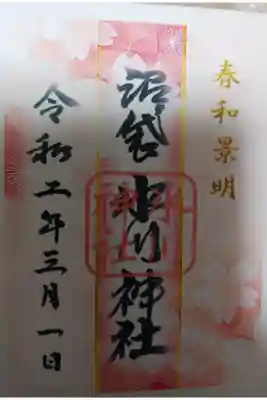 春和景明
沼袋 氷川神社
令和二年三月一日